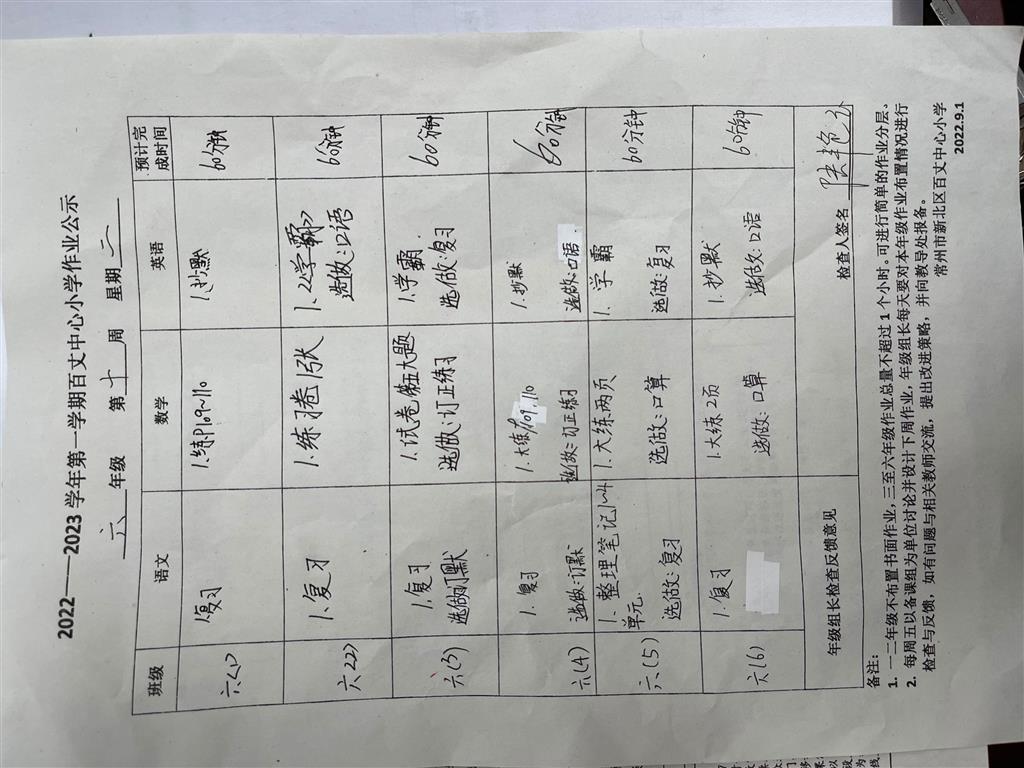 2022——2023 学年第一学期百丈中心小学作业公示
六 年级 第 十 周 星期 二
班级 语文 数学 英语 预计完成时间
六(1) 1.复习 1.练P109~110 1.抄默 60分钟
六(2) 1.复习 1.练习卷1张 1.《学霸》 60分钟
选做:口语
六(3) 1.复习 1.试卷 1.学霸 60分钟
选做:订正练习 选做:复习
六(4) 1.复习 1.大练P109~110 1.抄默 60分钟
选做:订默 选做:订正练习 选做:口语
六(5) 1.整理笔记1~4 1.大练两页 1.学霸 60分钟
单元. 选做:口算 选做:复习
选做:复习
六(6) 1.复习 1.大练2页 1.抄默 60分钟
选做:口算 选做:口语
年级组长检查反馈意见
检查人签名
备注:
1. 一二年级不布置书面作业,三至六年级作业总量不超过 1 个小时。可进行简单的作业分层、
2. 每周五以备课组为单位讨论并设计下周作业,年级组长每天要对本年级作业布置情况进行
检查与反馈,如有问题与相关教师交流,提出改进策略,并向教导处报备。
常州市新北区百丈中心小学
2022.9.1